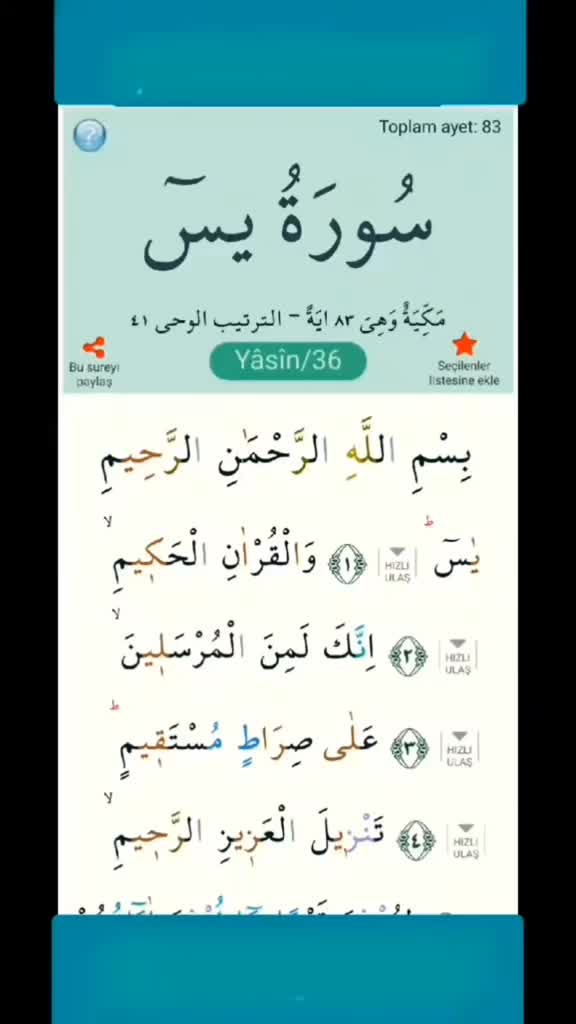 Toplam ayet: 83
سُورَةُ يسٓ
مَكِّيَةٌ وَهِىَ ٨٣ ايَةً – الترتيب الوحى ٤١
Bu sureyi paylaş
Yâsîn/36
Seçilenler listesine ekle
بِسْمِ اللَّهِ الرَّحْمٰنِ الرَّحِيمِ
يٰسٓ ۜ HIZLI ULAŞ ﴿١﴾ وَالْقُرْاٰنِ الْحَكٖيمِ ۙ
HIZLI ULAŞ ﴿٢﴾ اِنَّكَ لَمِنَ الْمُرْسَلٖينَ ۙ
HIZLI ULAŞ ﴿٣﴾ عَلٰى صِرَاطٍ مُسْتَقٖيمٍ ؕ
HIZLI ULAŞ ﴿٤﴾ تَنْزٖيلَ الْعَزٖيزِ الرَّحٖيمِ ۙ